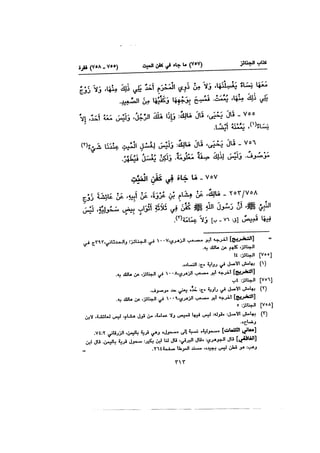 كتاب الجنائز (٧٥٧) ما جاء في كفن الميت (٧٥٥ - ٧٥٨) فقرة
مَعَهَا نِسَاءٌ يُغَسِّلْنَهَا، وَلَا مِنْ ذَوِي الْمَحْرَمِ أَحَدٌ يَلِي ذَلِكَ مِنْهَا، وَلَا زَوْجٌ
يَلِي ذَلِكَ مِنْهَا، يُمِّمَتْ. فَمُسِحَ بِوَجْهِهَا وَكَفَّيْهَا مِنَ الصَّعِيدِ.
٧٥٥ - قَالَ يَحْيَى، قَالَ مَالِكٌ: وَإِذَا هَلَكَ الرَّجُلُ، وَلَيْسَ مَعَهُ أَحَدٌ، إِلَّا
نِسَاءٌ(١)، يَمَّمْنَهُ أَيْضًا.
٧٥٦ - قَالَ يَحْيَى، قَالَ مَالِكٌ: وَلَيْسَ لِغُسْلِ الْمَيِّتِ عِنْدَنَا شَيْءٌ(٢)
مَوْصُوفٌ. وَلَيْسَ لِذَلِكَ صِفَةٌ مَعْلُومَةٌ. وَلَكِنْ يُغَسَّلُ فَيُطَهَّرُ.
٧٥٧ - مَا جَاءَ فِي كَفَنِ الْمَيِّتِ
٢٥٣/٧٥٨ - مَالِكٌ، عَنْ هِشَامِ بْنِ عُرْوَةَ، عَنْ أَبِيهِ، عَنْ عَائِشَةَ زَوْجِ
النَّبِيِّ ﷺ أَنَّ رَسُولَ اللهِ ﷺ كُفِّنَ فِي ثَلَاثَةِ أَثْوَابٍ بِيضٍ سَحُولِيَّةٍ، لَيْسَ
فِيهَا قَمِيصٌ [ق ٧٦ - ب] وَلَا عِمَامَةٌ(٣).
= [التخريج] أخرجه أبو مصعب الزهري، ١٠٠٧ في الجنائز؛ والحدثاني، في
الجنائز، كلهم عن مالك به.
[٧٥٥] الجنائز:
(١) بهامش الأصل في رواية
[التخريج] أخرجه أبو مصعب الزهري، ١٠٠٨ في الجنائز، عن مالك به.
[٧٥٦] الجنائز:
(٢) بهامش الأصل في يعني حد موصوف.
[التخريج] أخرجه أبو مصعب الزهري، ١٠٠٩ في الجنائز، عن مالك به.
[٧٥٨] الجنائز: ٥
(٣) بهامش الأصل: «قوله: ليس فيها قميص ولا عمامة، من قول هشام، ليس لعائشة، لابن
وضاح».
[معاني الكلمات] «سحولية» نسبة إلى سحول، وهي قرية باليمن، الزرقاني ٢:
[الغافقي] قال الجوهري: «قال البرقي، قال لنا ابن بكير: سحول قرية باليمن. قال ابن
وهب: هو قطن ليس بجيد»، مسند الموطأ صفحة
٣١٣